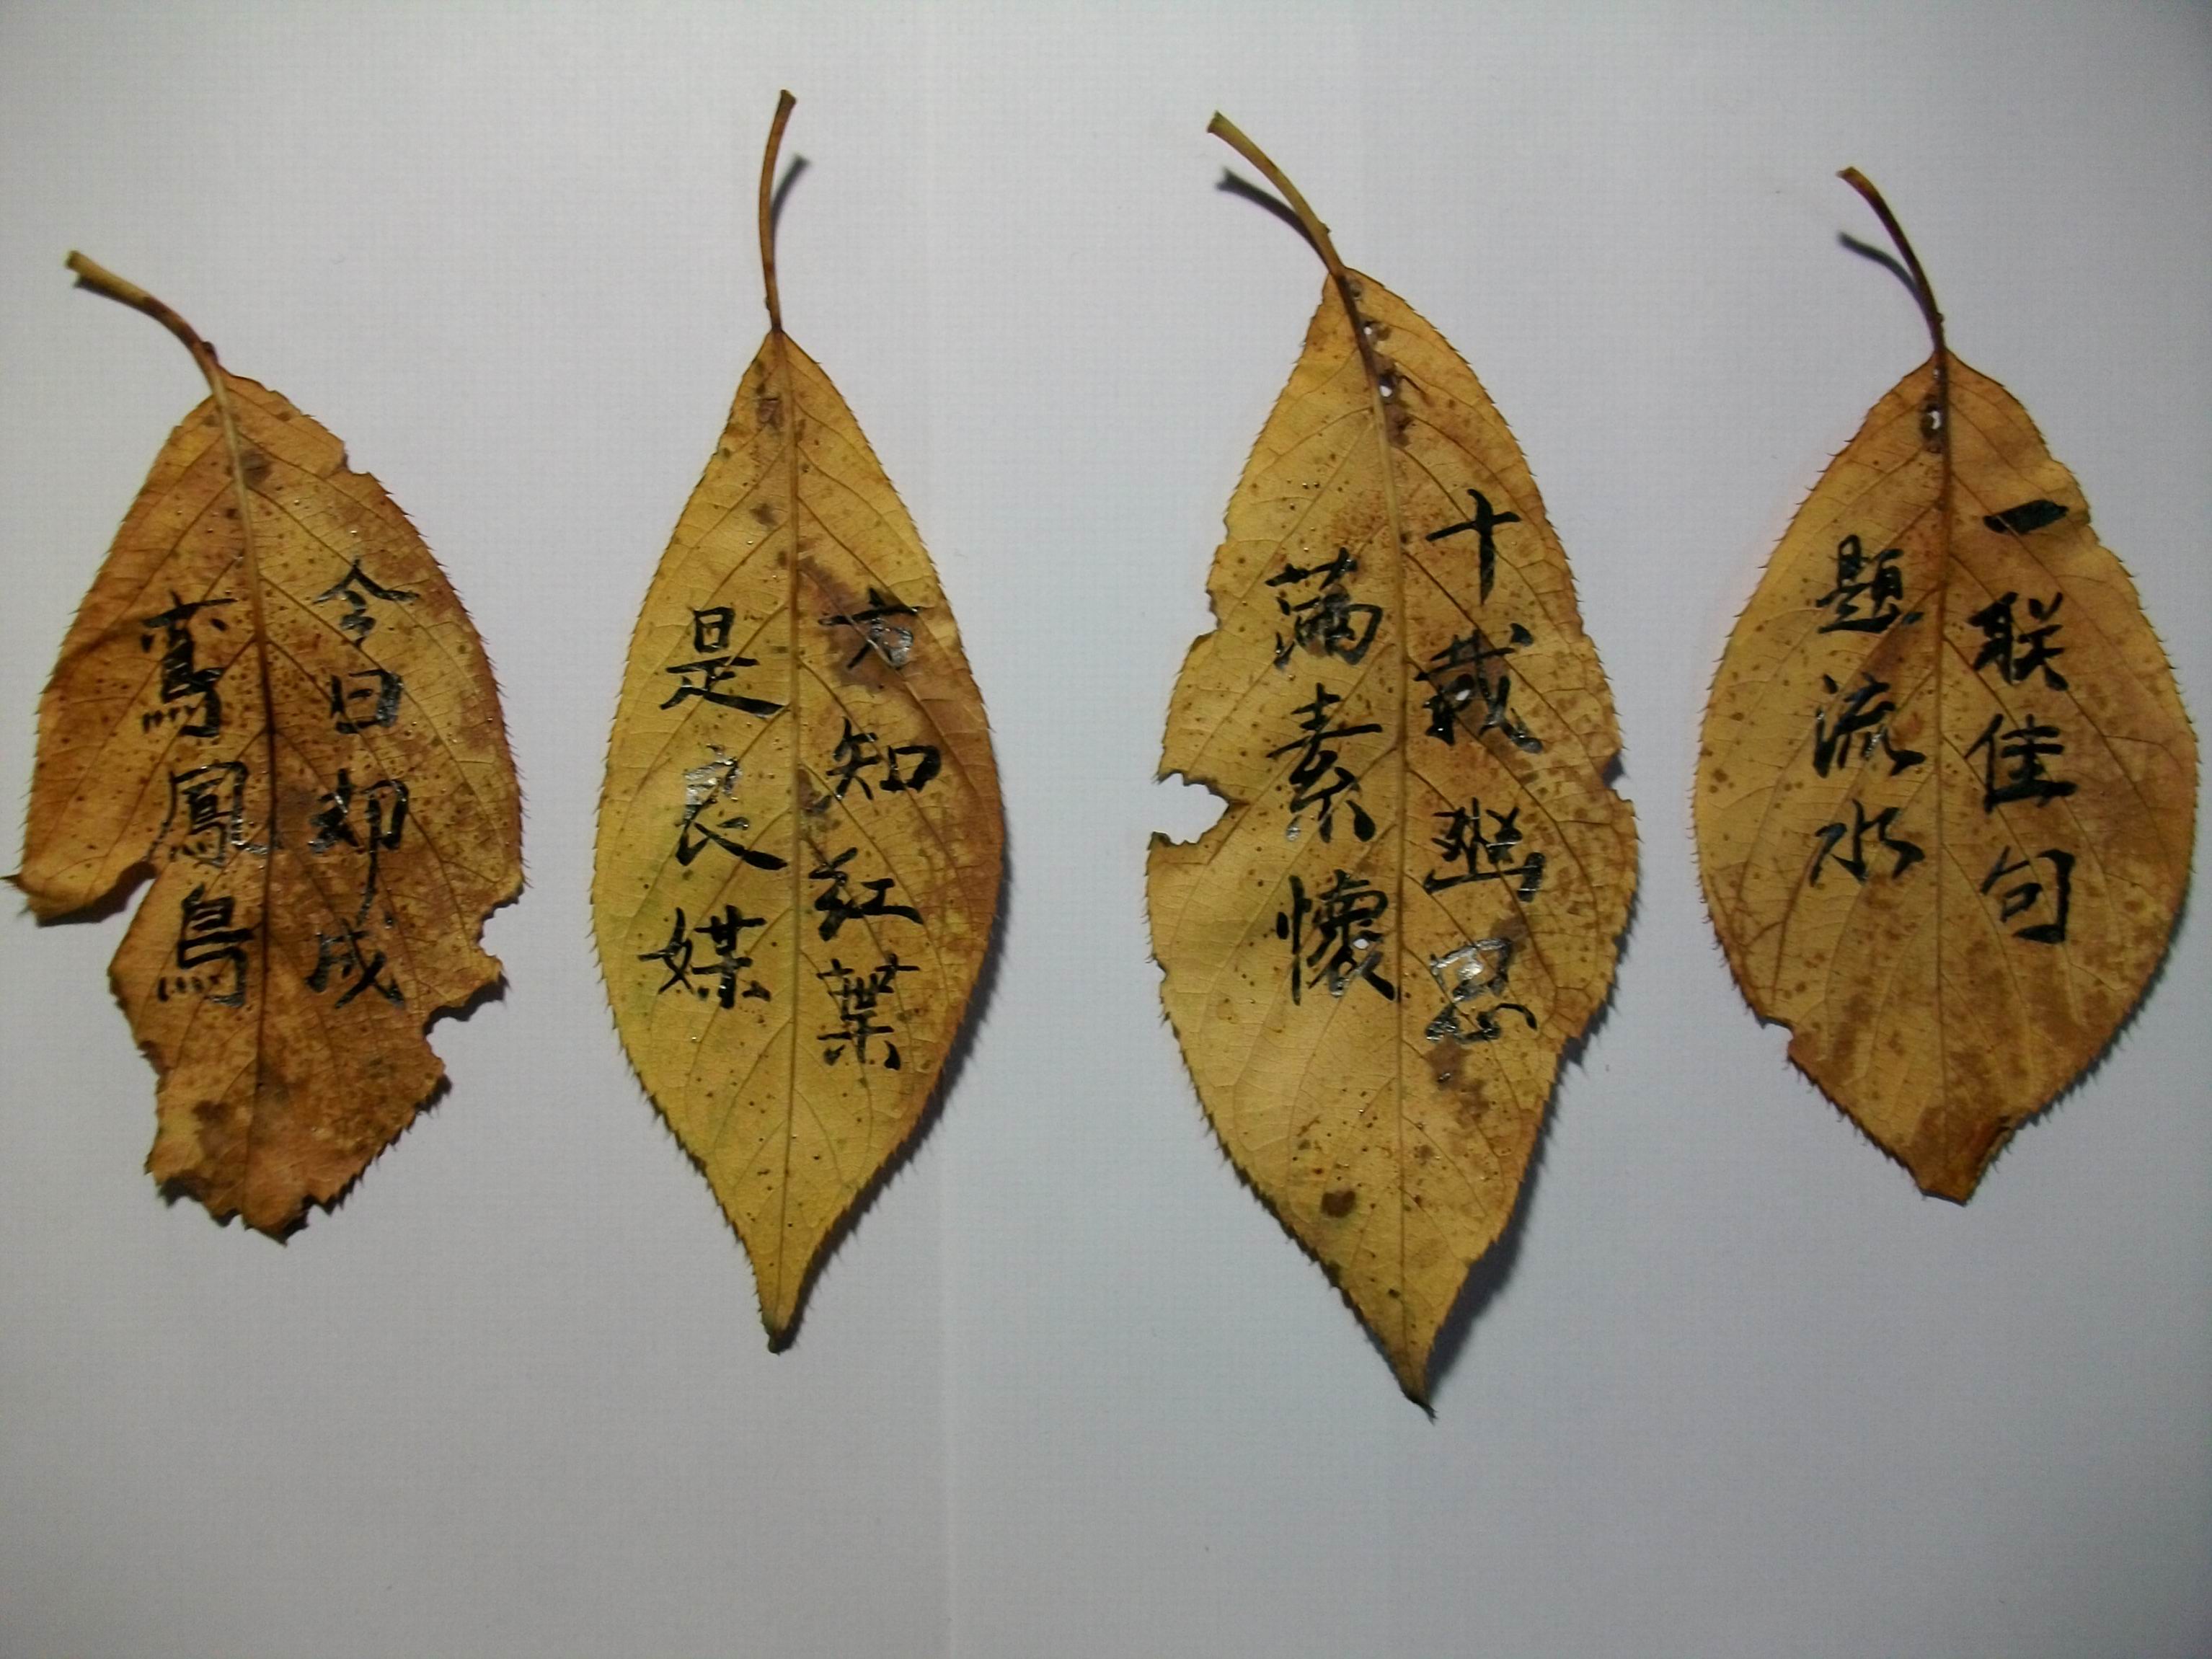 一联佳句
题流水
十载幽思
满素懷
今日却成
鸞鳳鳥
方知红葉
是良媒